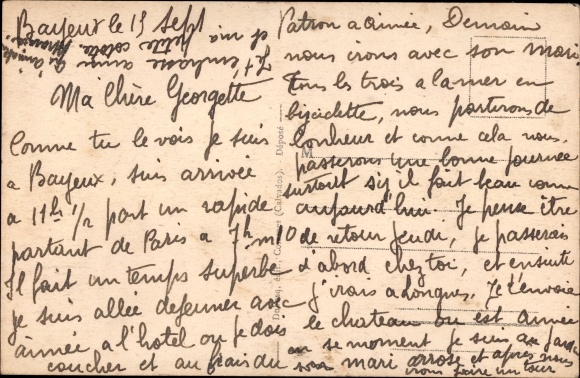 Bayeux le 19 Sept
Ma Chère Georgette
Comme tu le vois je suis
a Bayeux, suis arrivée
a 11h 1/2 part un rapide
partant de Paris a 7h m10
Il fait un temps superbe
je suis allée dejeuner avec
aimée a l'hotel ou je dois
coucher et au frais du
Patron a aimée, Demain
nous irons avec son mari
tous les trois a la mer en
biciclette, nous parterons de
bonheur et comme cela nous
passerons une bonne journée
surtout s'il fait beau comme
aujourd'hui. Je pense être
de retour jeudi, je passerais
d'abord chez toi, et ensuite
j'irais a Longues. Je t'envoie
le chateau ou est aimée
en se moment je suis au jardin
son mari arrose et apres nous
irons faire un tour
Je t'embrasse ainsi
et ma petite
Déposé
(Calvados)